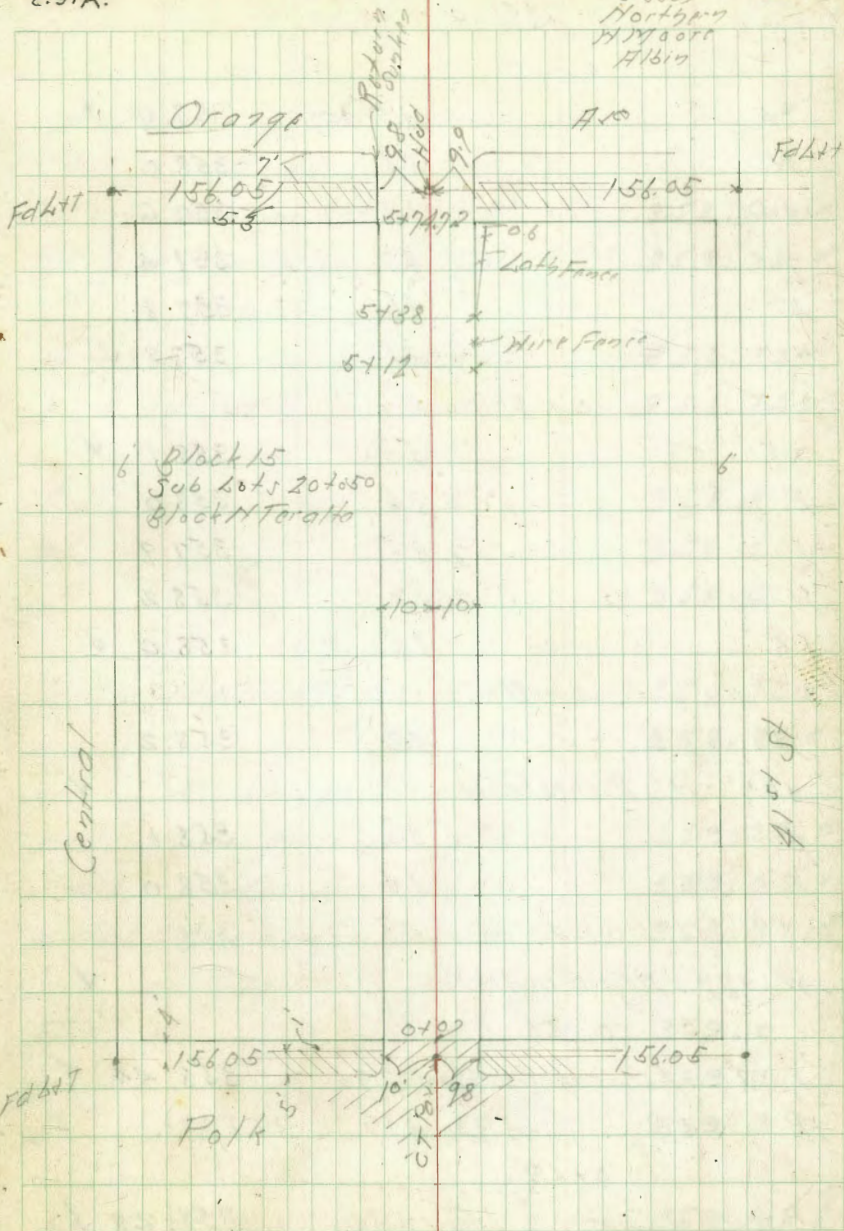 Northern
W Moore
Albin
Return
Sunken
Orange
Ave
7'
9.8
Hub
9.9
FdL+T
FdL+T
156.05
156.05
5.5
5+74.72
0.6
Lath Fence
5+38
Wire Fence
5+12
6
6
Block 15
Sub Lots 20 to 50
Block N Teralta
10
10
Central
41st St
4'
1'
0+07
156.05
156.05
FdL+T
5'
10'
98
Polk